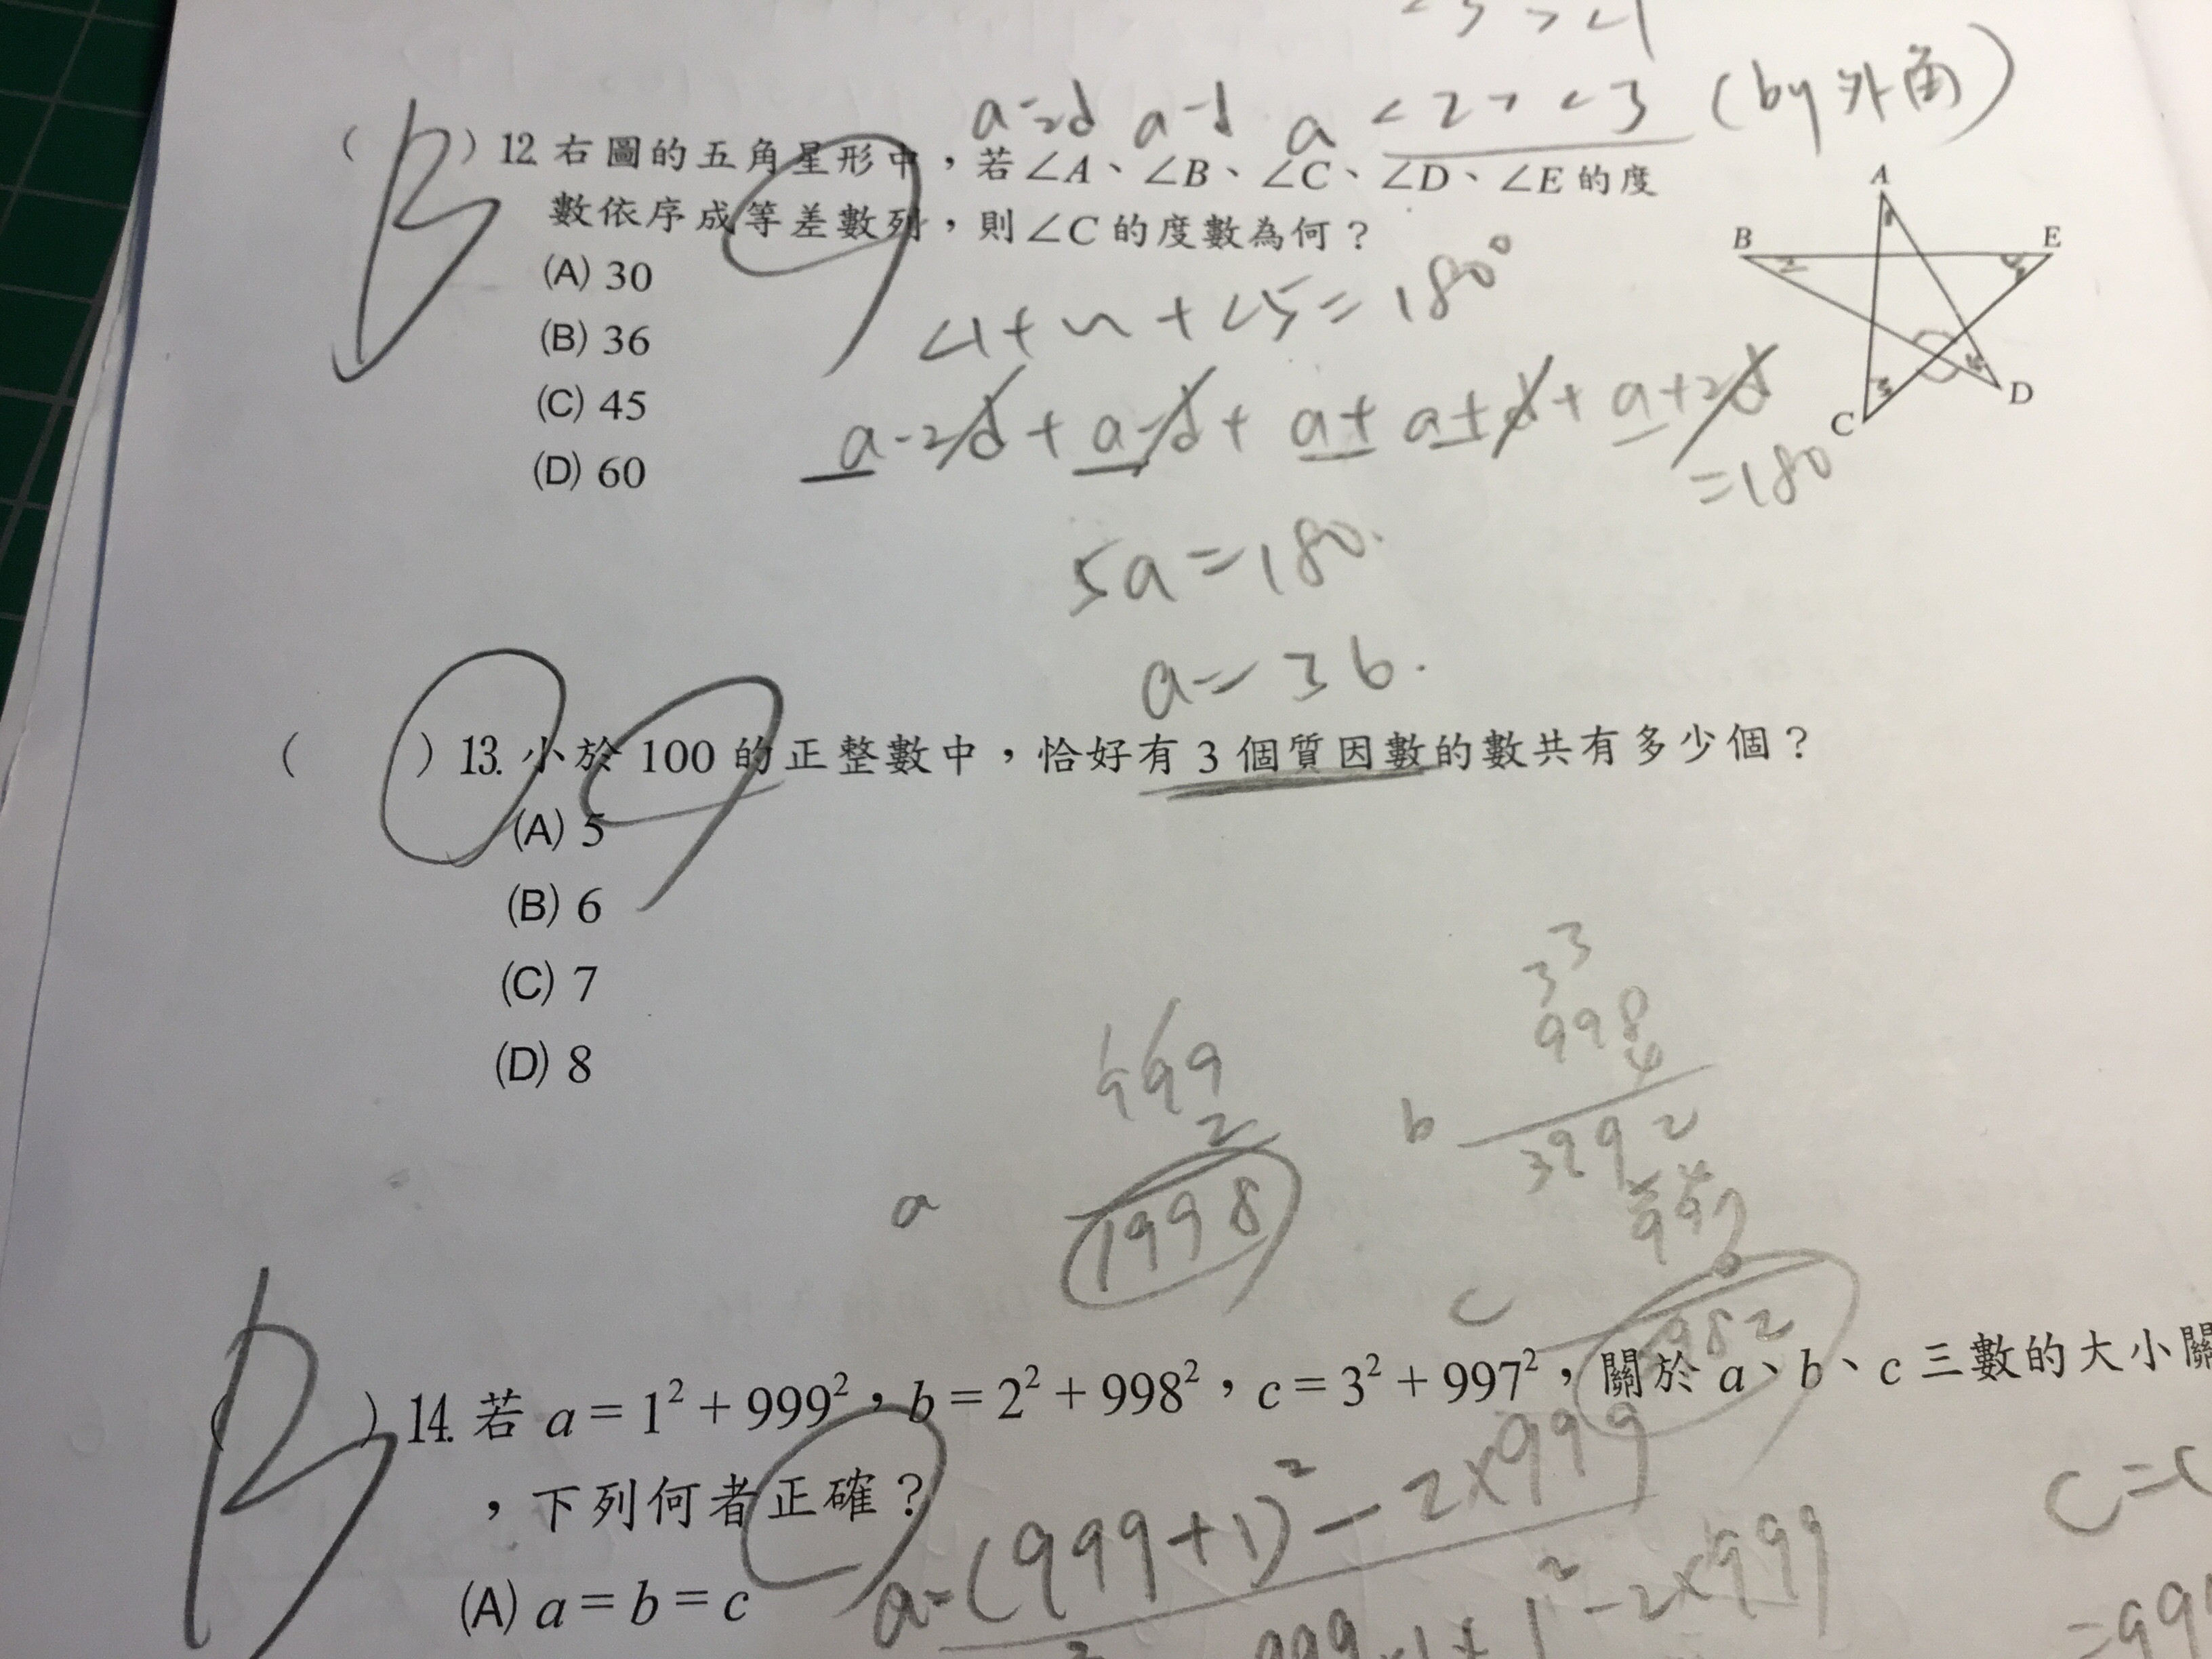 a-2d a-d a <2><3 (by 外角)
( B )12. 右圖的五角星形中，若∠A、∠B、∠C、∠D、∠E的度
數依序成等差數列，則∠C的度數為何？
(A) 30
(B) 36
(C) 45
(D) 60
A
B
E
C
D
∠1+~+∠5=180°
a-2d+a-d+a+a+d+a+2d
=180
5a=180.
a=36.
( )13. 小於 100 的正整數中，恰好有 3 個質因數的數共有多少個？
(A) 5
(B) 6
(C) 7
(D) 8
a
999
2
1998
b
33
998
4
3992
c
997
6
982
( B )14. 若 a = 1² + 999²，b = 2² + 998²，c = 3² + 997²，關於 a、b、c 三數的大小關
，下列何者正確？
a=(999+1)²-2×999
(A) a = b = c
1²-2×999